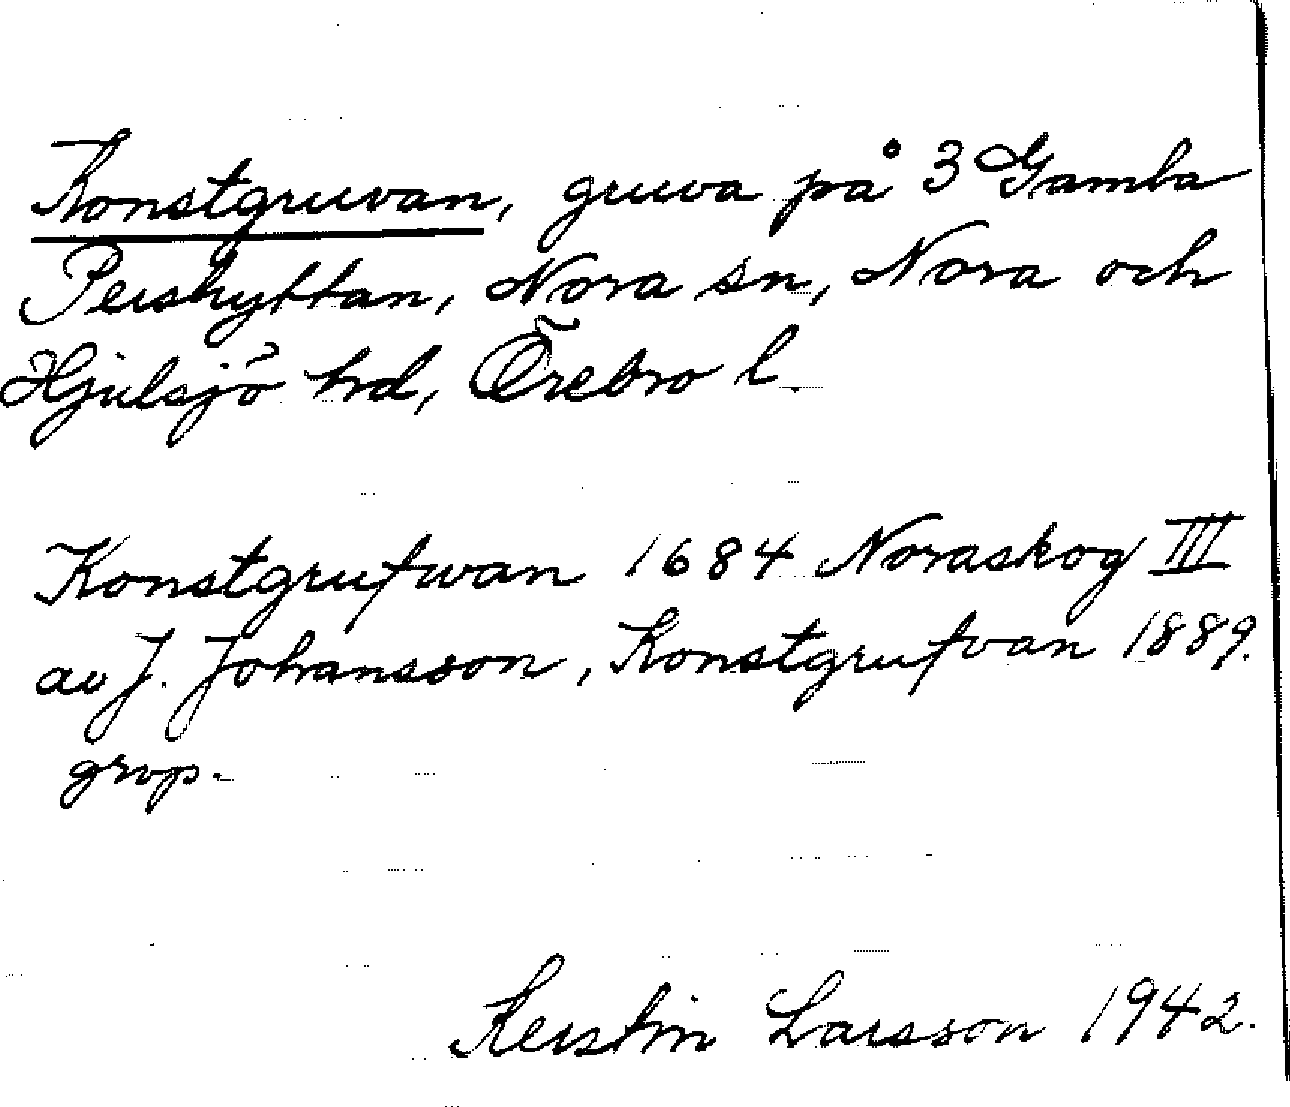 Konstgruvan, gruva på 3 Gamla
Pershyttan, Nora sn, Nora och
Hjulsjö hd, Örebro l.
Konstgrufwan 1684 Noraskog III
av J. Johansson, Konstgrufvan 1889.
grop.
Kerstin Larsson 1942.